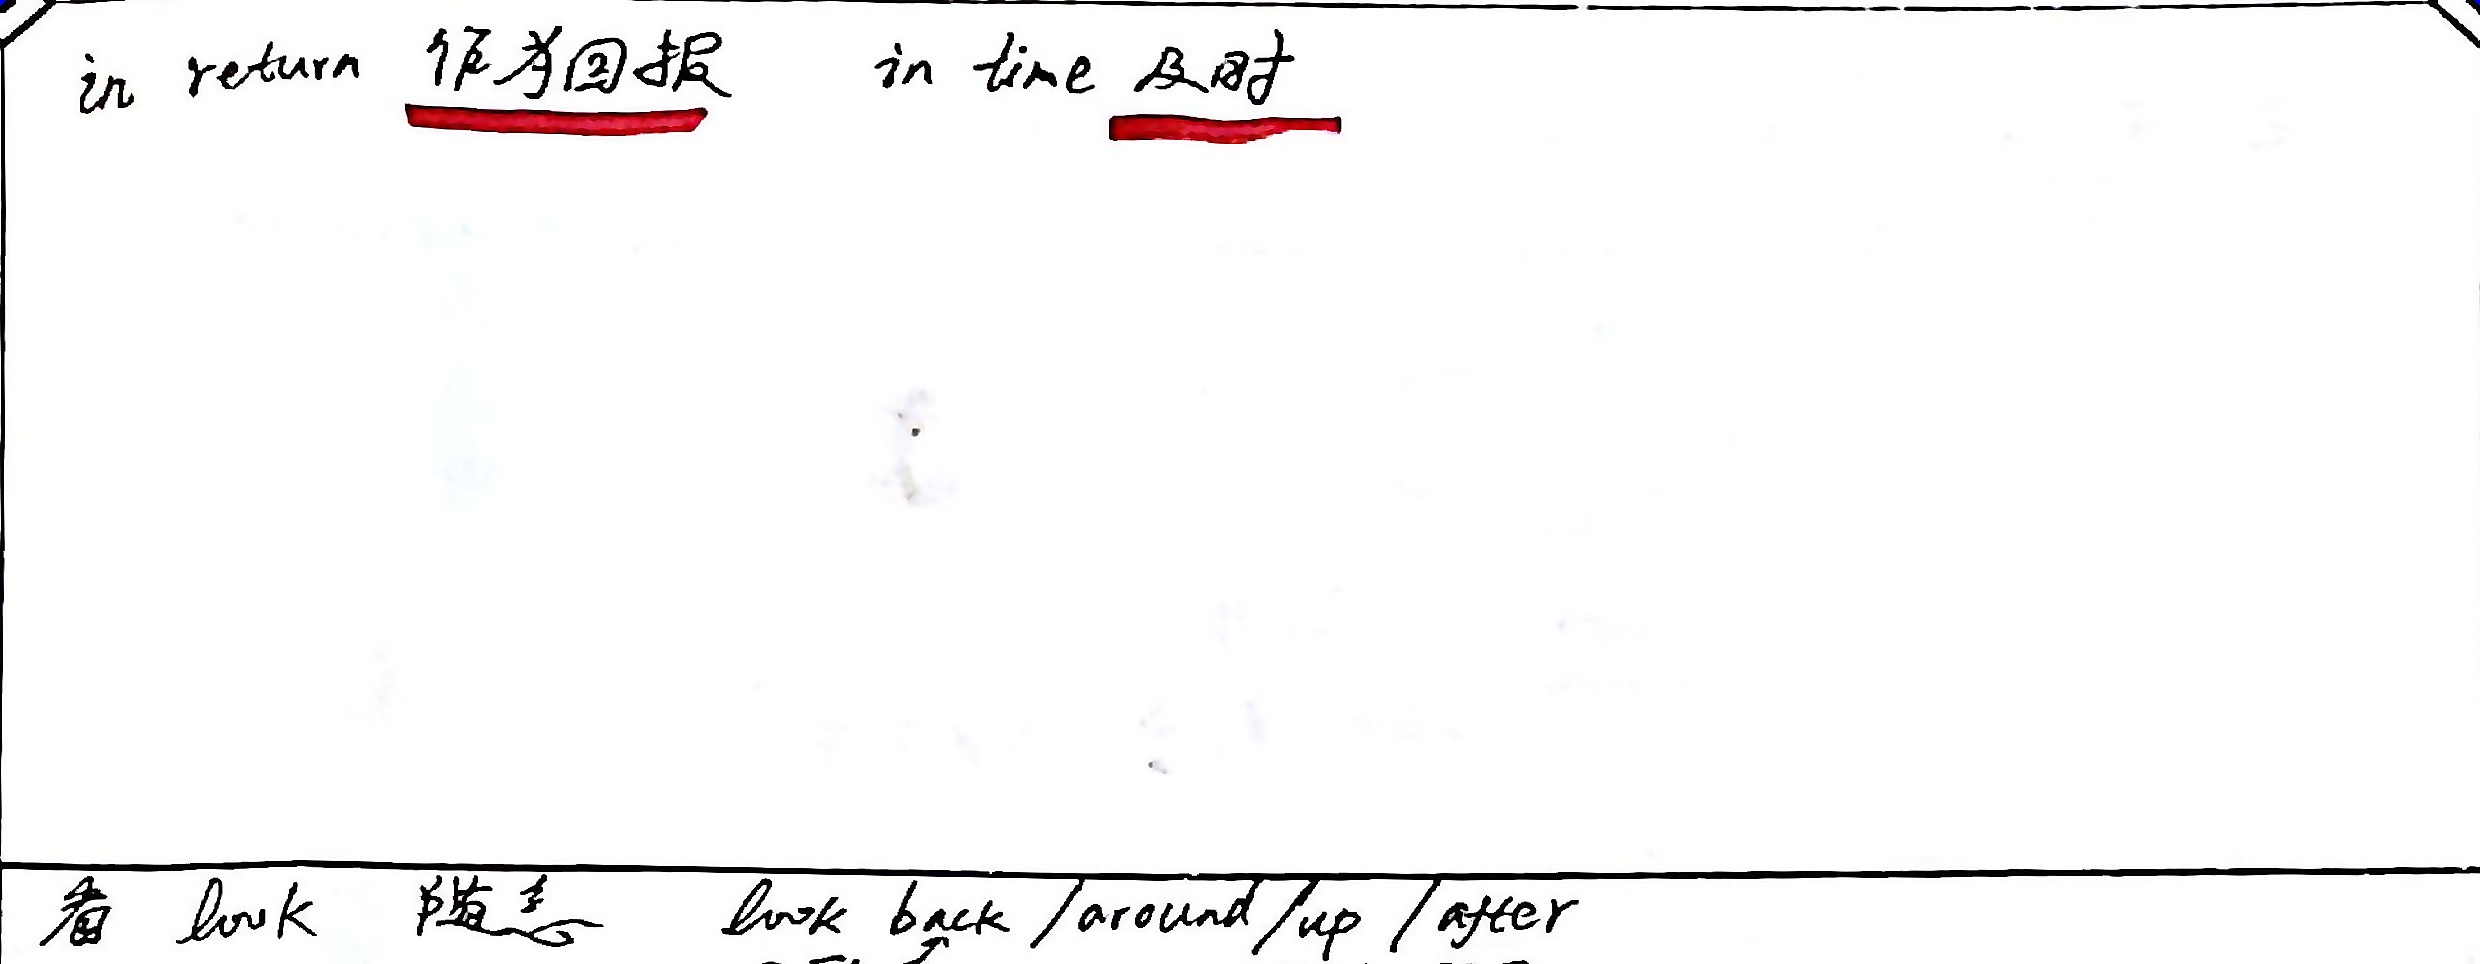 in return 作为回报 in time 及时
看 look 随意 look back /around/up /after